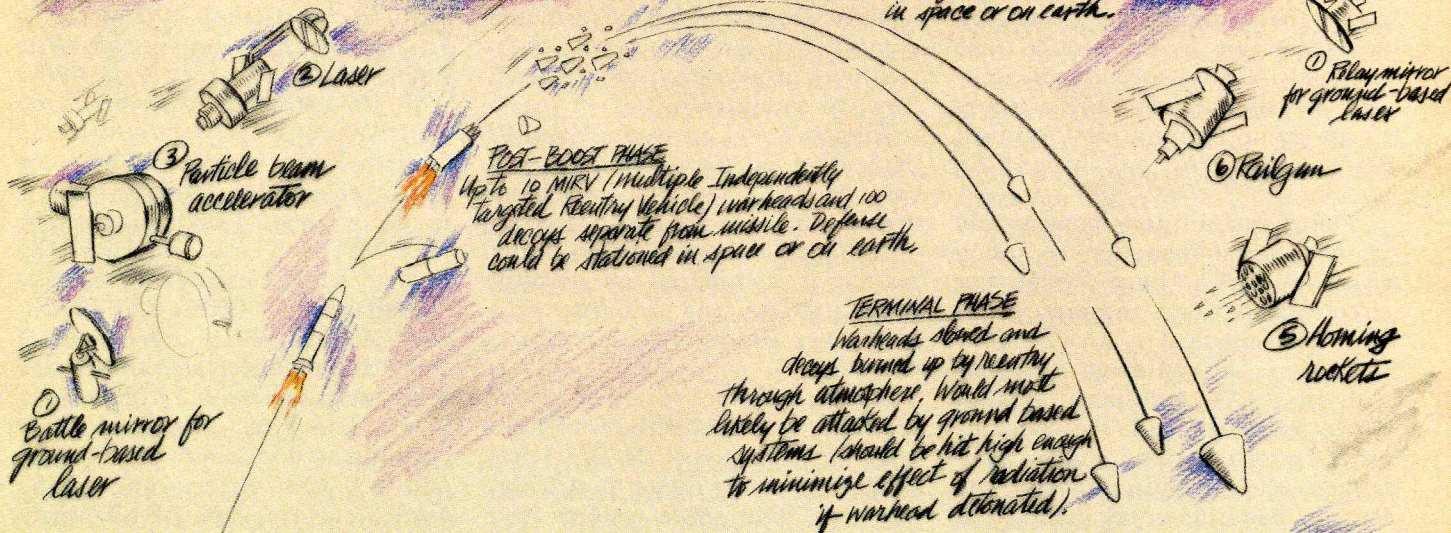 in space or on earth.
② Laser
③ Particle beam
accelerator
① Battle mirror for
ground-based
laser
POST-BOOST PHASE
Up to 10 MIRV (Multiple Independently
targeted Reentry Vehicle) warheads and 100
decoys separate from missile. Defense
could be stationed in space or on earth.
TERMINAL PHASE
Warheads slowed and
decoys burned up by reentry
through atmosphere. Would most
likely be attacked by ground based
systems (should be hit high enough
to minimize effect of radiation
if warhead detonated).
① Relay mirror
for ground-based
laser
⑥ Railgun
⑤ Homing
rockets